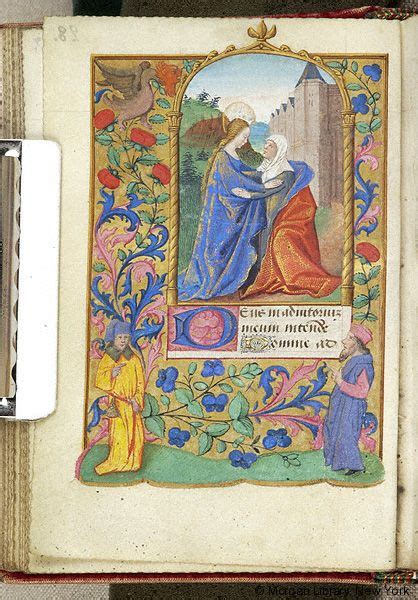 28
Deus in adiutoriuz
meum intende
Domine ad
© Morgan Library, New York